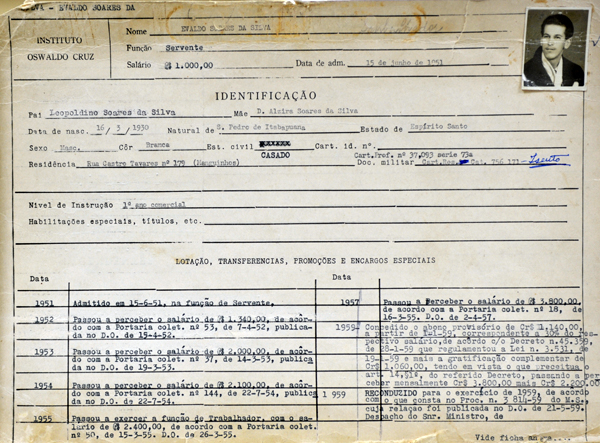 SILVA - EVALDO SOARES DA
INSTITUTO
OSWALDO CRUZ
Nome EVALDO SOARES DA SILVA
Função Servente
Salário ₢$ 1.000,00 Data de adm. 15 de junho de 1951
IDENTIFICAÇÃO
Pai Leopoldino Soares da Silva Mãe D. Alzira Soares da Silva
Data de nasc. 16/ 3 /1930 Natural de S. Pedro de Itabapuana Estado de Espírito Santo
Sexo Masc. Côr Branca Est. civil CASADO Cart. id. nº.
Cart.Pref. nº 37.093 serie 73a
Residência Rua Castro Tavares nº 179 (Manguinhos) Doc. militar Cart.Res. Cat. 756 171- Isento
Nivel de Instrução 1º ano comercial
Habilitações especiais, títulos, etc.
LOTAÇÃO, TRANSFERENCIAS, PROMOÇÕES E ENCARGOS ESPECIAIS
Data
1951 Admitido em 15-6-51, na função de Servente.
1952 Passou a perceber o salário de ₢$ 1.340,00, de acôr-
do com a Portaria colet. nº 53, de 7-4-52, publica-
da no D.O. de 15-4-52.
1953 Passou a perceber o salário de ₢$ 2.000,00, de acôr-
do com a Portaria colet. nº 37, de 14-3-53, publica
da no D.O. de 19-3-53.
1954 Passou a perceber o salário de ₢$ 2.100,00, de acôr-
do com a Portaria colet. nº 144, de 22-7-54, publica
da no D.O. de 22-7-54.
1955 Passou a exercer a função de Trabalhador, com o sa-
lário de ₢$ 2.400,00, de acordo com a Portaria colet.
nº 50, de 15-3-55. D.O. de 26-3-55.
Data
1957 Passou a perceber o salário de ₢$ 3.800,00,
de acordo com a Portaria colet. nº 18, de
16-3-55. D.O. de 2-4-57.
1959- Concedido o abono provisório de Cr$ 1.140,00
a partir de 1-1-59, correspondente a 30% do res-
pectivo salário, de acôrdo c/o Decreto n.45.359,
de 28-1-59 que regulamentou a Lei n. 3.531, de
19-1-59 e mais a gratificação complementar de
Cr$ 1.060,00, tendo em vista o que preceitua o
art. 14,§1º, do referido Decreto, passando a per-
ceber mensalmente Cr$ 3.800,00 mais Cr$ 2.200,00
1 959 RECONDUZIDO para o exercício de 1959, de acordo
com o que consta no Proc. n. 3 814-59 do M.S.,
cuja relação foi publicada no D.O. de 21-5-59.
Despacho do Snr. Ministro, de
Vide ficha an